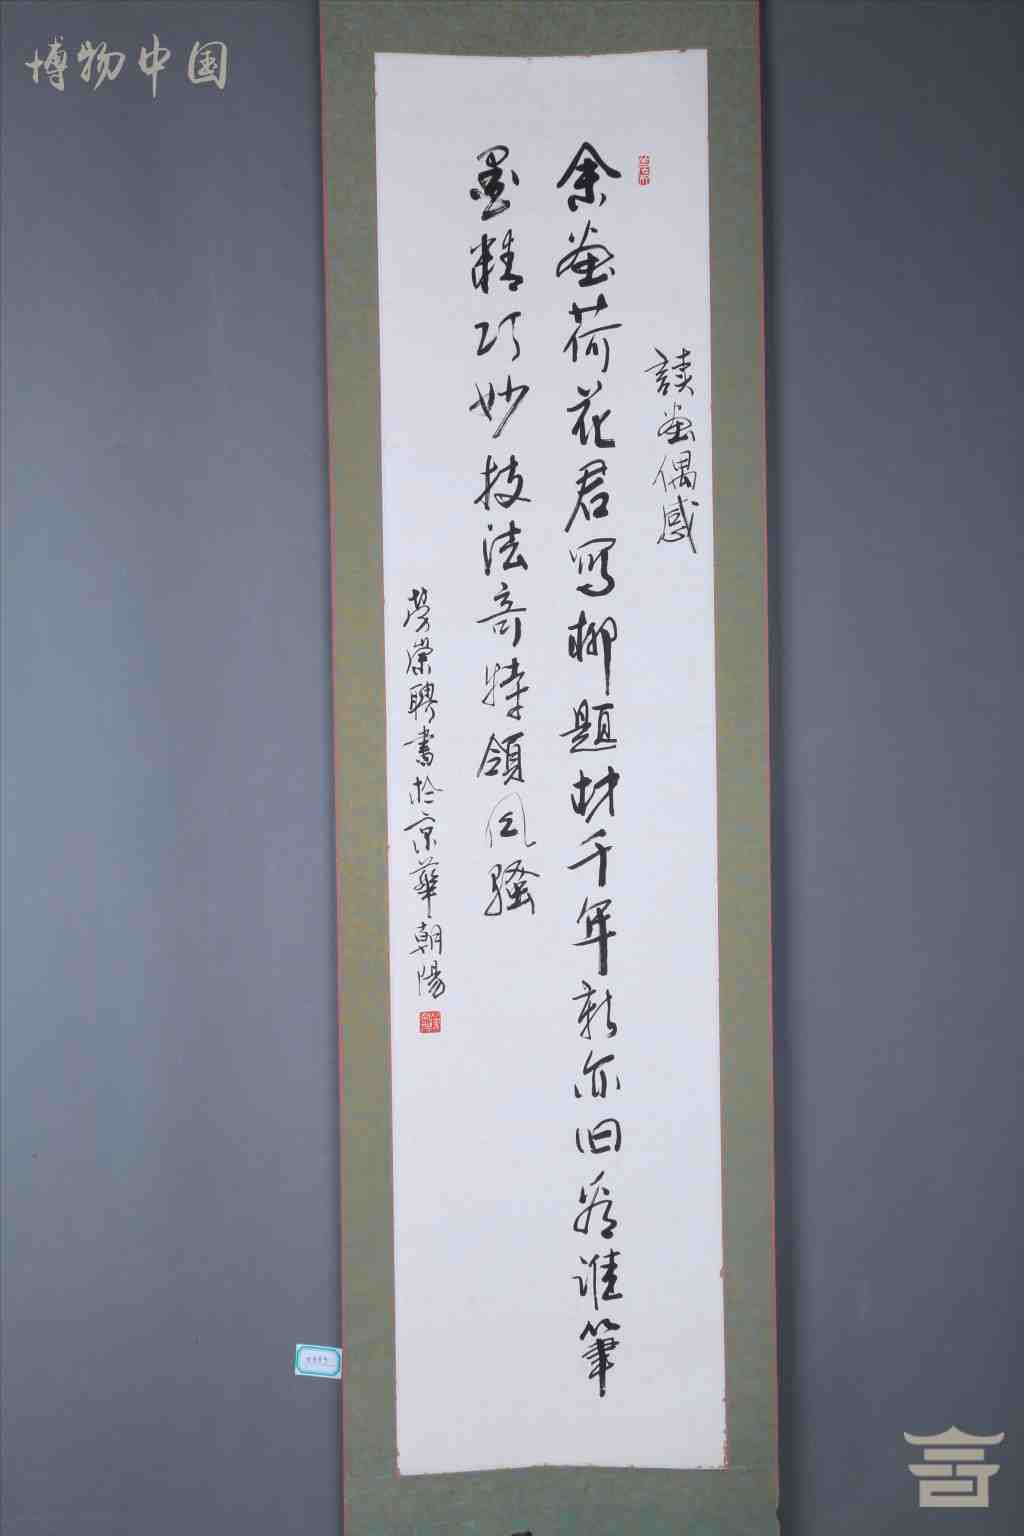 博物中国
讀畫偶感
余畫荷花君寫柳題材千年新亦旧看誰筆
墨精巧妙技法奇特領风騷
勞榮聘書於京華朝陽